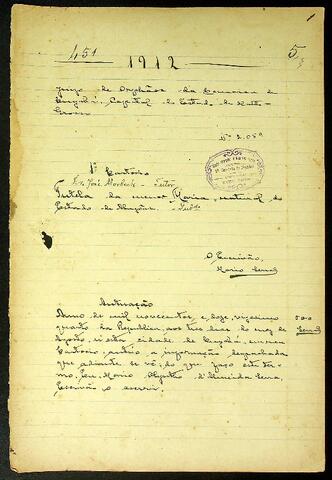 1
451
1912
5
Juizo de Orphãos da Comarca de
Cuyabá, Capital do Estado de Matto-
Grosso
Nº 2.050
1º Cartorio
Dr. José Morbeck - Tutor
Tutela da menor Maria, natural do
Estado de Alagôas.
O Escrivão,
Mario
Autuação
Anno de mil novecentos e doze, vigesimo
quarto da Republica, aos tres dias do mez de
Agosto, n'esta cidade de Cuyabá, em meu
Cartorio, autúo a informação despachada
que adiante se vê; do que faço este ter-
mo. Eu, Mario d'Almeida
Escrivão o escrevi.
500